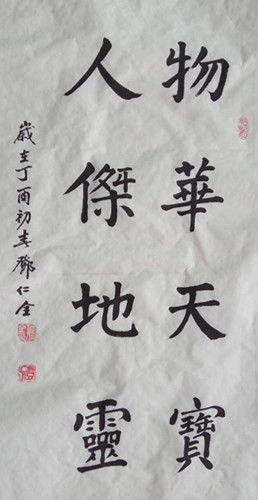 物華天寶
人傑地靈
歲在丁酉初春鄧仁全